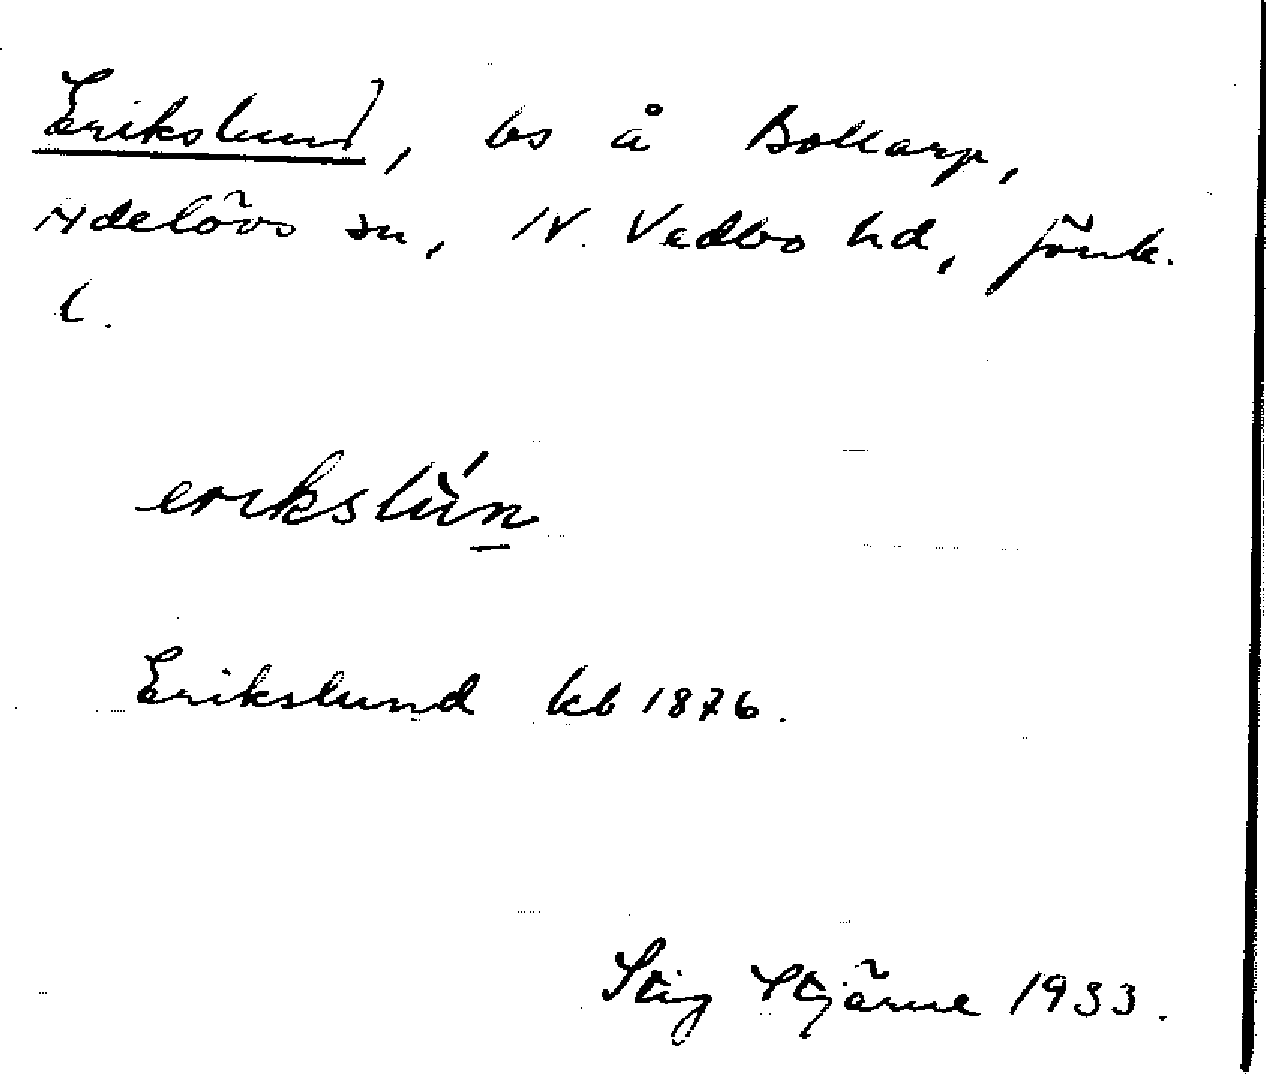 Erikslund, bs å Bollarp,
Adelövs sn, N. Vedbo hd, Jönk.
l.
erikslún
Erikslund kb 1876.
Stig Stjärne 1933.